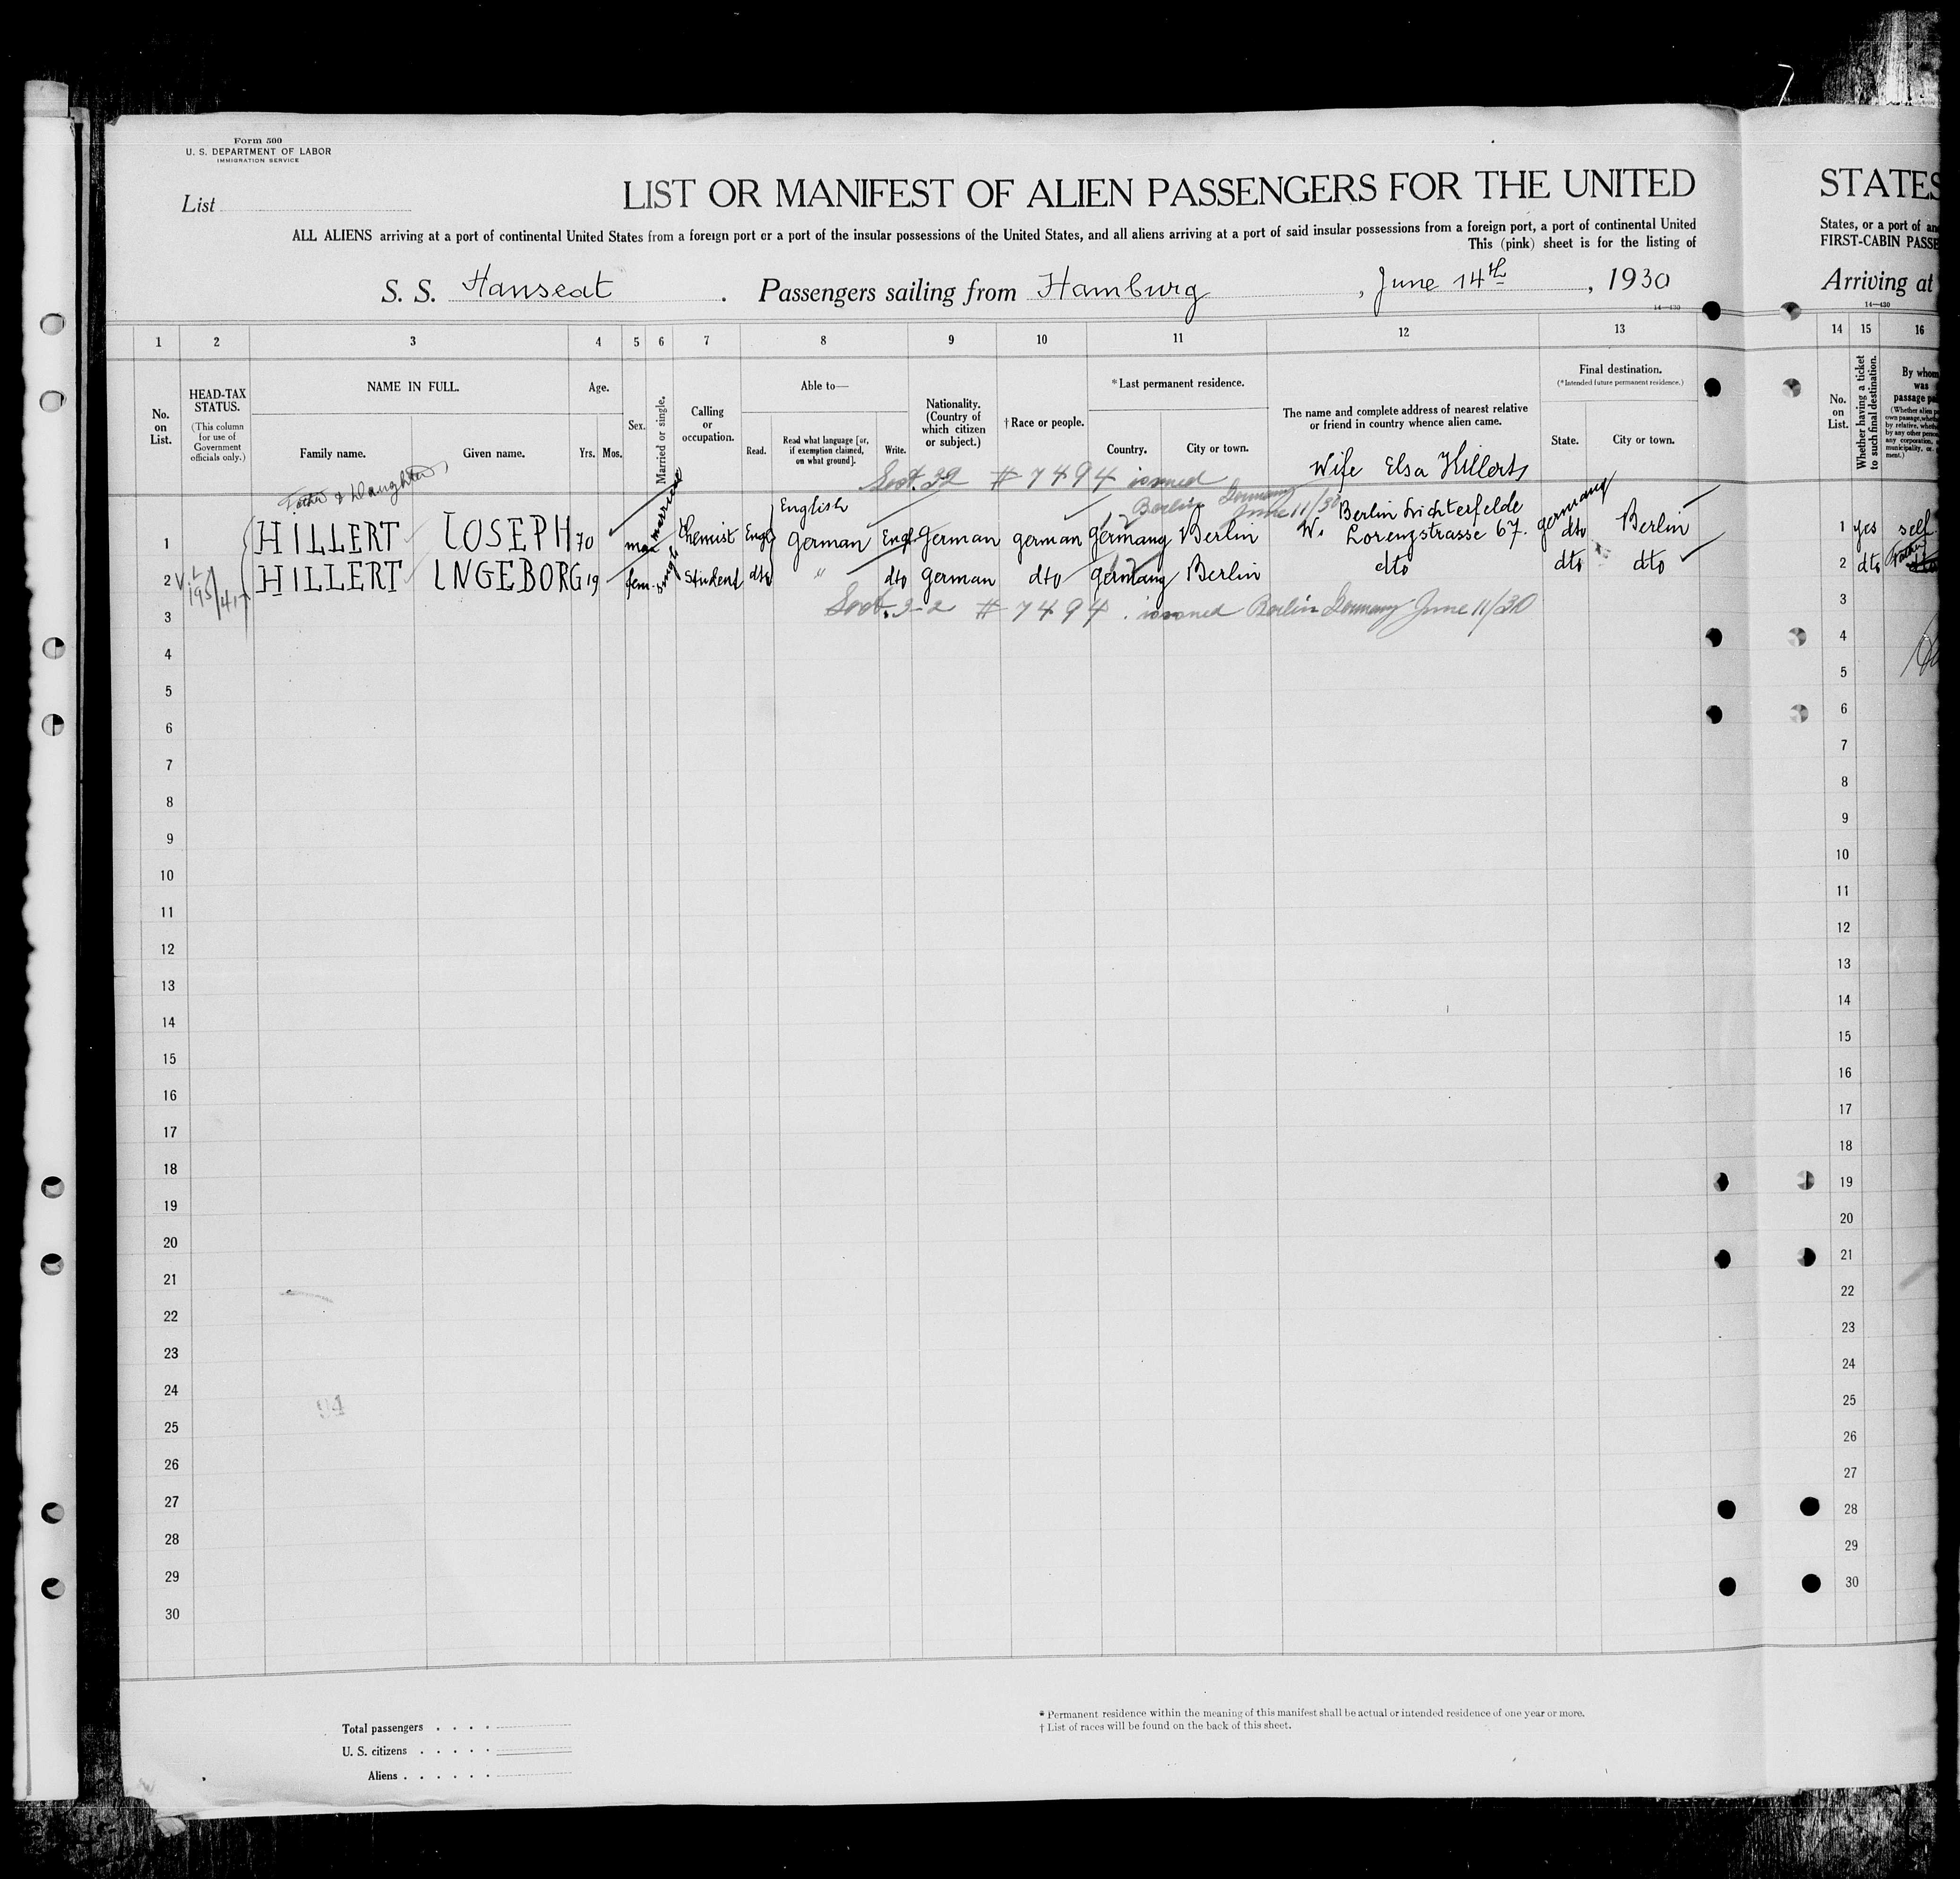 7
Form 500
U. S. DEPARTMENT OF LABOR
IMMIGRATION SERVICE
List
LIST OR MANIFEST OF ALIEN PASSENGERS FOR THE UNITED
STATES
ALL ALIENS arriving at a port of continental United States from a foreign port or a port of the insular possessions of the United States, and all aliens arriving at a port of said insular possessions from a foreign port, a port of continental United
States, or a port of
This (pink) sheet is for the listing of
FIRST-CABIN
S. S. Hanseat . Passengers sailing from Hamburg , June 14th , 1930
Arriving at
14—430
14—430
1 2 3 4 5 6 7 8 9 10 11 12 13 14 15 16
No. on List.
HEAD-TAX STATUS.
(This column for use of Government officials only.)
NAME IN FULL.
Family name.
Given name.
Age.
Yrs. Mos.
Sex.
Married or single.
Calling or occupation.
Able to—
Read.
Read what language [or, if exemption claimed, on what ground].
Write.
Nationality. (Country of which citizen or subject.)
†Race or people.
*Last permanent residence.
Country.
City or town.
The name and complete address of nearest relative or friend in country whence alien came.
Final destination.
(*Intended future permanent residence.)
State.
City or town.
No. on List.
Whether having a ticket to such final destination.
By whom was passage
Father & Daughter
Sect. 3-2 # 7494 issued
Berlin Germany
June 11/30
Wife Elsa Hillert
English
Berlin Lichterfelde
germany
1 HILLERT IOSEPH 70 married Chemist Engl German Engl German german Germany Berlin W. Lorenzstrasse 67. dto Berlin 1 yes self
2 HILLERT INGEBORG 19 fem. single Student dto " dto German dto Germany Berlin dto dto dto 2 dto Father
3 Sect. 3-2 # 7494 . issued Berlin Germany June 11/30 3
4 4
5 5
6 6
7 7
8 8
9 9
10 10
11 11
12 12
13 13
14 14
15 15
16 16
17 17
18 18
19 19
20 20
21 21
22 22
23 23
24 24
94
25 25
26 26
27 27
28 28
29 29
30 30
Total passengers . . . .
U. S. citizens . . . . .
Aliens . . . . . .
* Permanent residence within the meaning of this manifest shall be actual or intended residence of one year or more.
† List of races will be found on the back of this sheet.